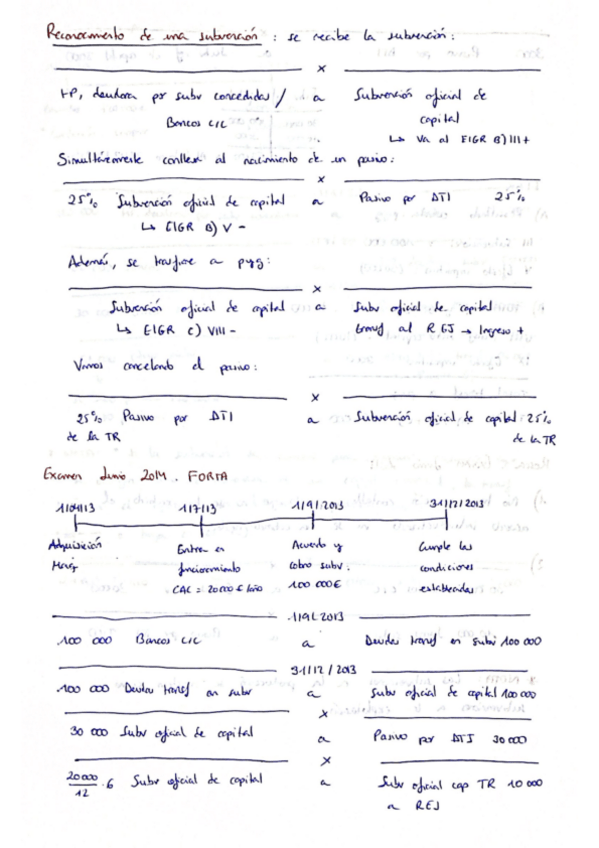 Reconocimiento de una subvención : se recibe la subvención :
x
HP, deudora por subv concedidas / a Subvención oficial de
Bancos c/c capital
↳ Va al EIGR B) III +
Simultáneamente conlleva al nacimiento de un pasivo :
x
25% Subvención oficial de capital a Pasivo por DTI 25%
↳ EIGR B) V -
Además, se transfiere a pyg :
x
Subvención oficial de capital a Subv oficial de capital
↳ EIGR C) VIII - transf al REJ → Ingreso +
Vamos cancelando el pasivo :
x
25% Pasivo por DTI a Subvención oficial de capital 25%
de la TR de la TR
Examen Junio 2014. FORTA
1/7/13 1/9/2013 31/12/2013
Adquisición Entra en Acuerdo y Cumple las
Maq funcionamiento cobro subv. condiciones
CAC = 20 000 € /año 100 000 € establecidas
1/9/2013
100 000 Bancos c/c a Deudas transf en subv 100 000
31/12/2013
100 000 Deudas transf en subv a Subv oficial de capital 100 000
x
30 000 Subv oficial de capital a Pasivo por DTI 30 000
x
20 000/12 · 6 Subv oficial de capital a Subv oficial cap TR 10 000
a REJ